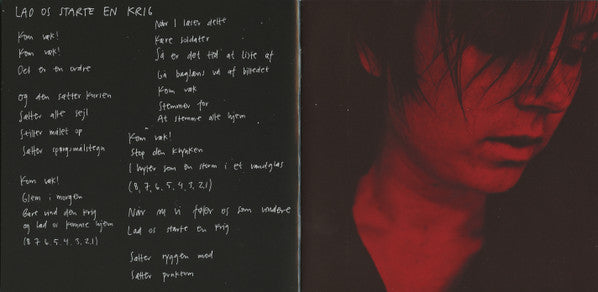 LAD OS STARTE EN KRIG
Kom væk!
Kom væk!
Det er en ordre
Og den sætter kursen
Sætter alle sejl
Stiller målet op
Sætter spørgsmålstegn
Kom væk!
Glem i morgen
Bare vind den krig
og lad os komme hjem
(8, 7, 6, 5, 4, 3, 2, 1)
Når I læser dette
Kære soldater
Så er det tid at liste af
Gå baglæns ud af billedet
Kom væk
Stemmer for
At stemme alle hjem
Kom væk!
Stop den klynken
I hyler som en storm i et vandglas
(8, 7, 6, 5, 4, 3, 2, 1)
Når nu vi føler os som vindere
Lad os starte en krig
Sætter ryggen mod
Sætter punktum